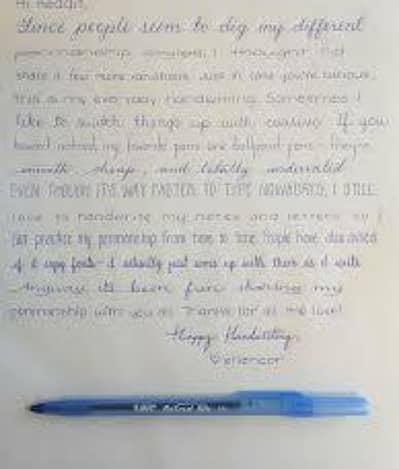 Hi Reddit,
Since people seem to dig my different
penmanship samples, I thought I'd
share a few more variations. Just in case you're curious,
this is my everyday handwriting. Sometimes I
like to switch things up with cursive. If you
haven't noticed, my favorite pens are ballpoint pens - they're
smooth, cheap, and totally underrated.
EVEN THOUGH IT'S WAY FASTER TO TYPE NOWADAYS, I STILL
love to handwrite my notes and letters so I
can practice my penmanship from time to time. People have also asked
if I copy fonts - I actually just come up with them as I write.
Anyway, it's been fun sharing my
penmanship with you all. Thanks for all the love!
Happy Handwriting,
BIC